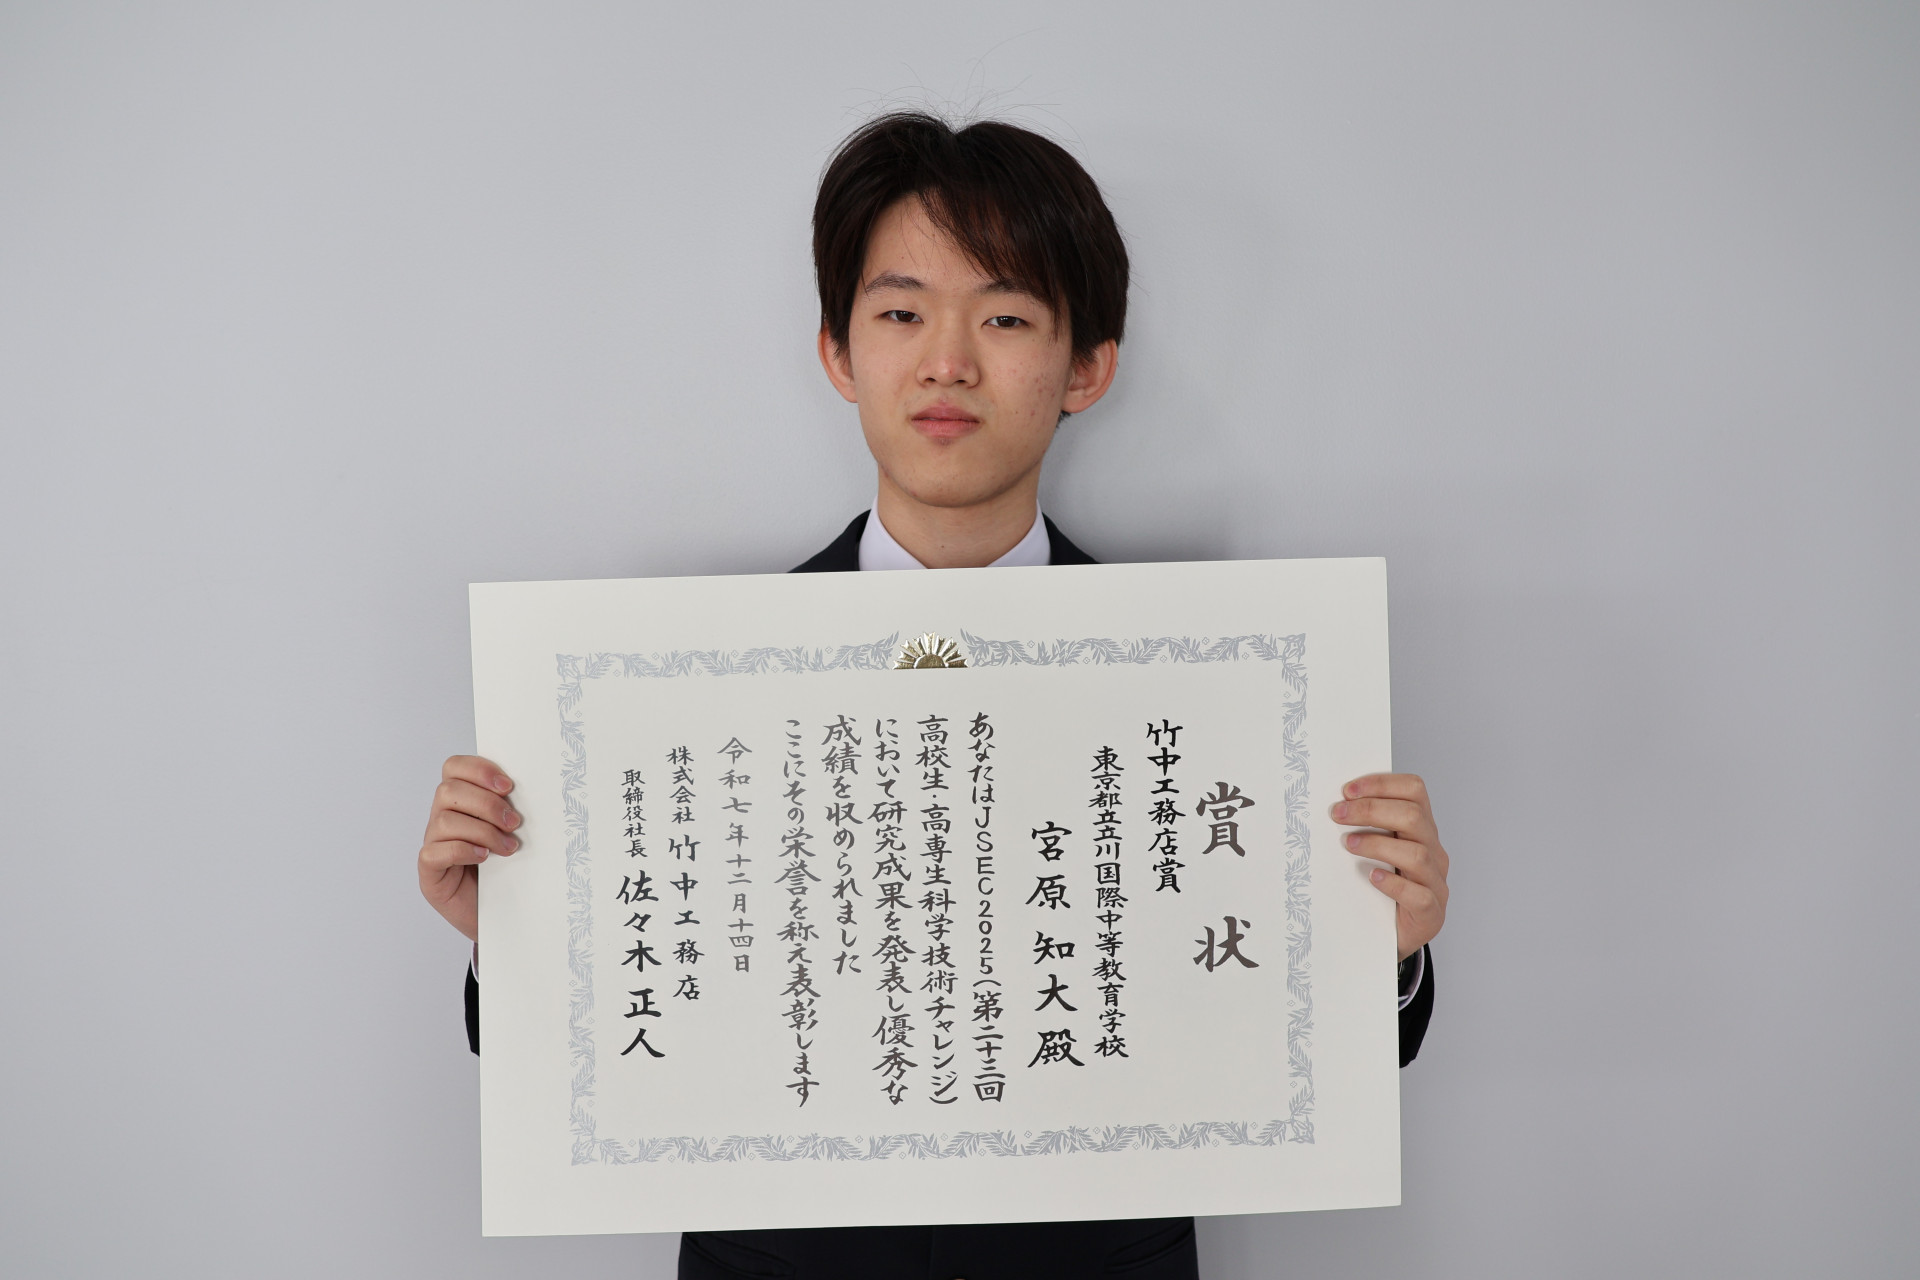 賞状
竹中工務店賞
東京都立立川国際中等教育学校
宮原知大殿
あなたはJSEC2025(第二十三回
高校生・高専生科学技術チャレンジ)
において研究成果を発表し優秀な
成績を収められました
ここにその栄誉を称え表彰します
令和七年十二月十四日
株式会社 竹中工務店
取締役社長 佐々木正人